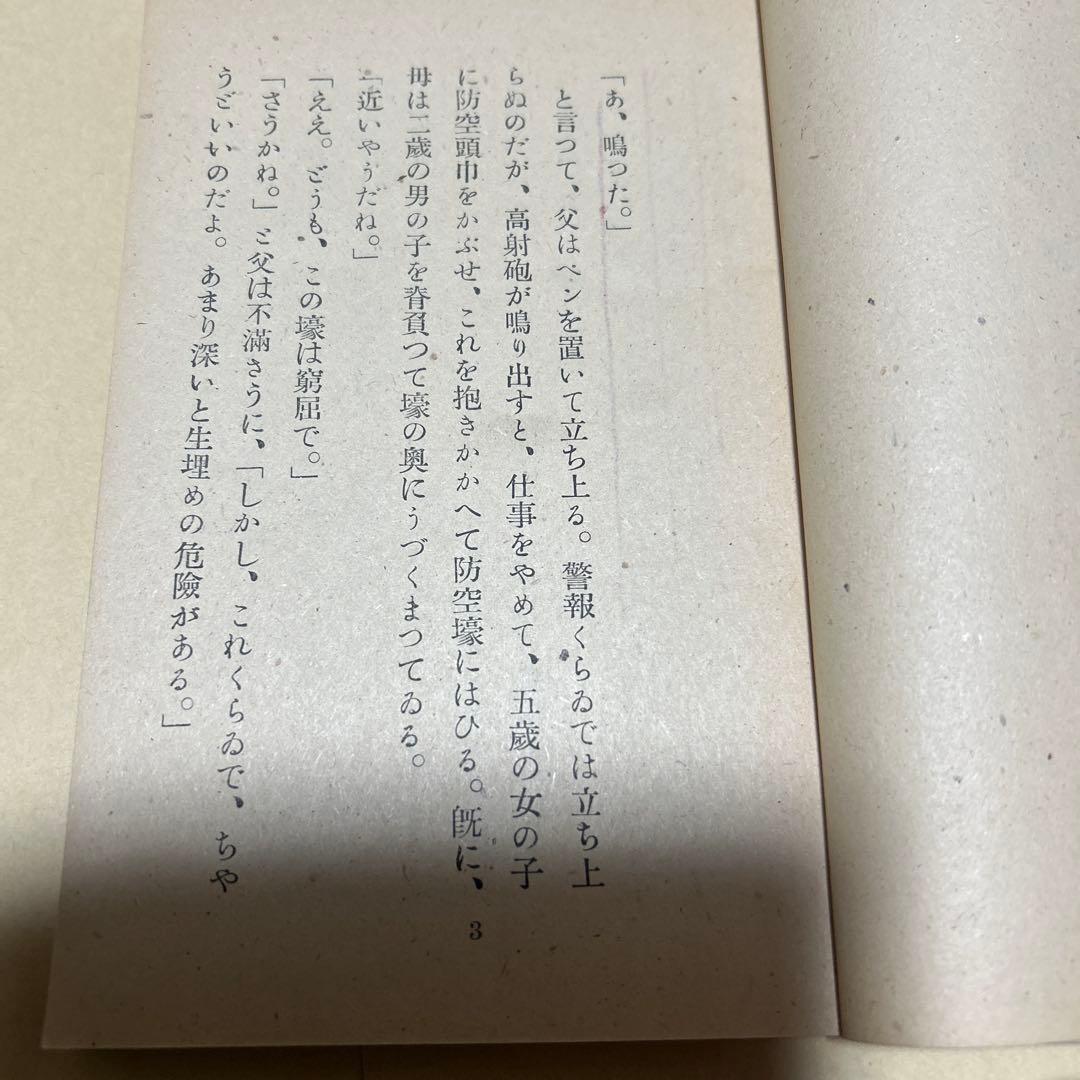 「あ、鳴つた。」
と言つて、父はペンを置いて立ち上る。警報くらゐでは立ち上
らぬのだが、高射砲が鳴り出すと、仕事をやめて、五歳の女の子
に防空頭巾をかぶせ、これを抱きかかへて防空壕にはひる。既に、
母は二歳の男の子を脊負つて壕の奥にうづくまつてゐる。
「近いやうだね。」
「ええ。どうも、この壕は窮屈で。」
「さうかね。」と父は不滿さうに、「しかし、これくらゐで、ちや
うどいいのだよ。あまり深いと生埋めの危險がある。」
3